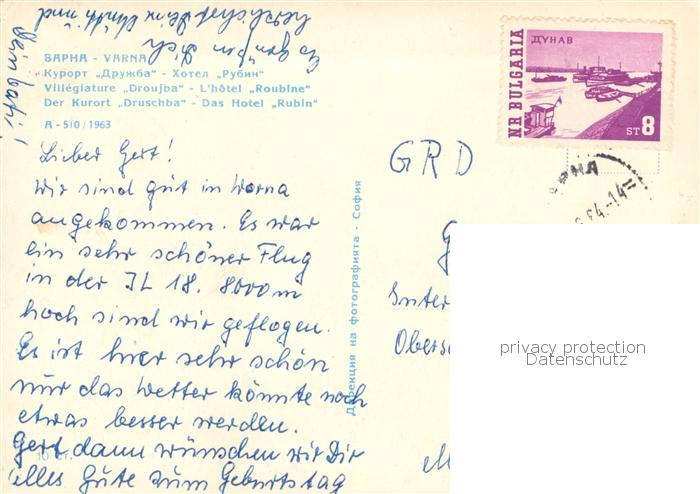 ВАРНА - VARNA
Курорт „Дружба" - Хотел „Рубин"
Villégiature „Droujba" - L'hôtel „Roubine"
Der Kurort „Druschba" - Das Hotel „Rubin"
A - 510 / 1963
Lieber Gert!
Wir sind gut in Warna
angekommen. Es war
ein sehr schöner Flug
in der IL 18. 8000 m
hoch sind wir geflogen.
Es ist hier sehr schön
nur das Wetter könnte noch
etwas besser werden.
Gert dann wünschen wir Dir
alles Gute zum Geburtstag
und
Dein Vati!
Дирекция на фотографията - София
NR BULGARIA
ДУНАВ
ST 8
GRD
privacy protection
Datenschutz